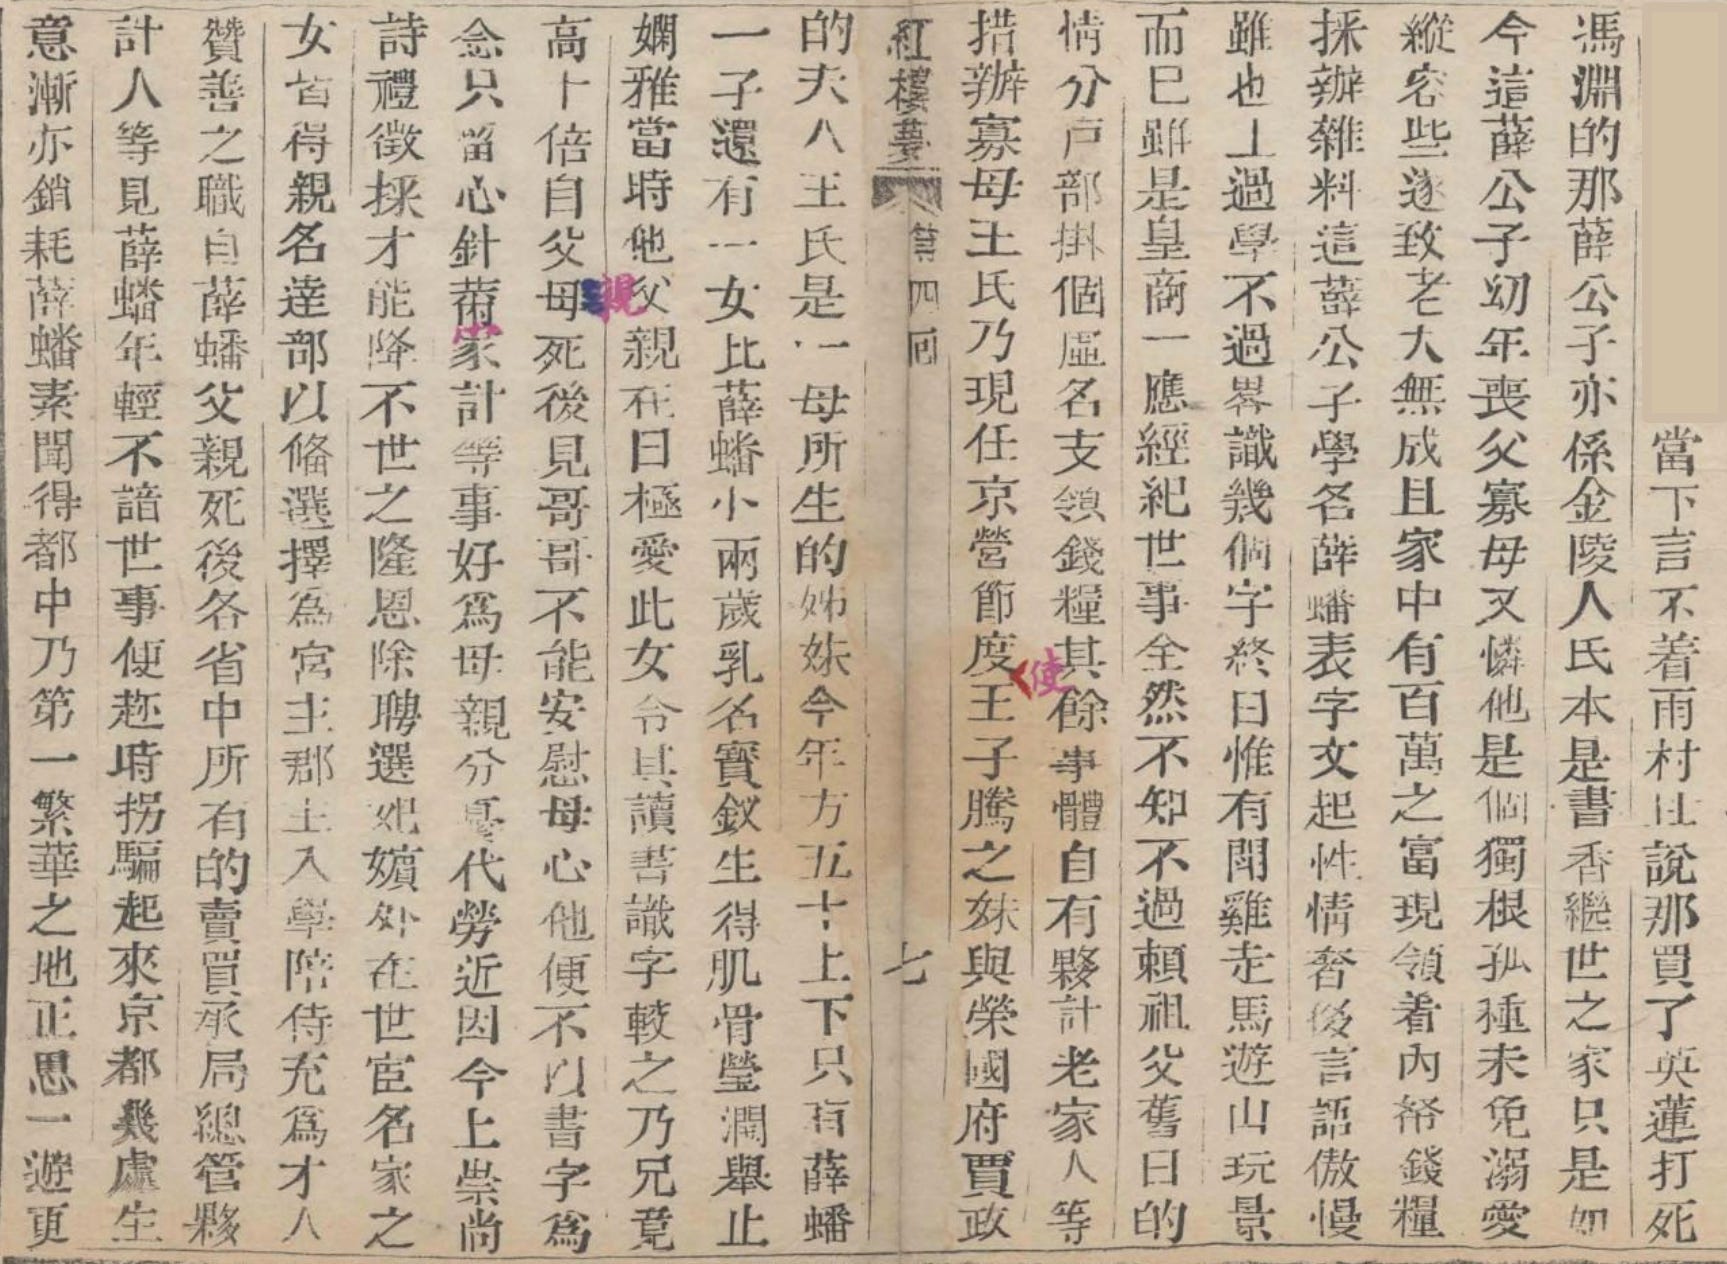 當下言不着雨村且說那買了英蓮打死
馮淵的那薛公子亦係金陵人氏本是書香繼世之家只是如
今這薛公子幼年喪父寡母又憐他是個獨根孤種未免溺愛
縱容些遂致老大無成且家中有百萬之富現領着內帑錢糧
採辦雜料這薛公子學名薛蟠表字文起性情奢侈言語傲慢
雖也上過學不過畧識幾個字終日惟有鬥雞走馬遊山玩景
而已雖是皇商一應經紀世事全然不知不過賴祖父舊日的
情分戶部掛個虛名支領錢糧其餘事體自有夥計老家人等
措辦寡母王氏乃現任京營節度使王子騰之妹與榮國府賈政
紅樓夢 第四回 七
的夫人王氏是一母所生的姊妹今年方五十上下只有薛蟠
一子還有一女比薛蟠小兩歲乳名寶釵生得肌骨瑩潤舉止
嫻雅當時他父親在日極愛此女令其讀書識字較之乃兄竟
高十倍自父親母死後見哥哥不能安慰母心他便不以書字為
念只留心針黹家計等事好為母親分憂代勞近因今上崇尚
詩禮徵採才能降不世之隆恩除聘選妃嬪外在世宦名家之
女皆得親名達部以備選擇為宮主郡主入學陪侍充為才人
贊善之職自薛蟠父親死後各省中所有的賣買承局總管夥
計人等見薛蟠年輕不諳世事便趂時拐騙起來京都幾處生
意漸亦銷耗薛蟠素聞得都中乃第一繁華之地正思一遊更